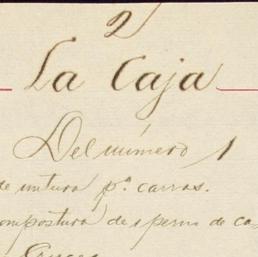 2
La Caja
Del número 1
de untura p.ª carros.
compostura de 1 perno de ca